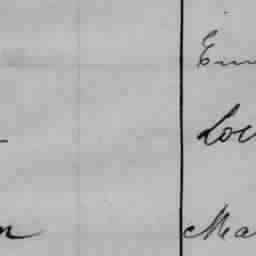 Em
Lou
n Ma